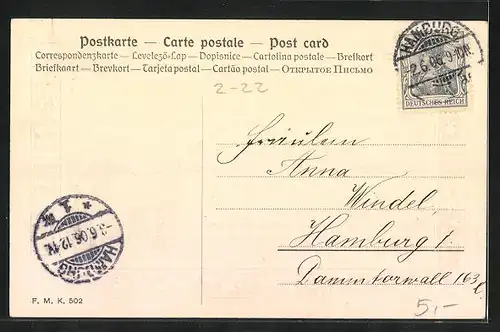 Postkarte — Carte postale — Post card
Correspondenzkarte — Levelező-Lap — Dopisnice — Cartolina postale — Brefkort
Briefkaart — Brevkort — Tarjeta postal — Cartão postal — Открытое Письмо
HAMBURG
2.6.06.9-10N.
DEUTSCHES REICH
2-22
Fräulein
Anna
Windel,
Hamburg 1.
Dammtorwall 163
HAMBURG
-3.6.06.12-1V.
* 1 k
F. M. K. 502
5,-